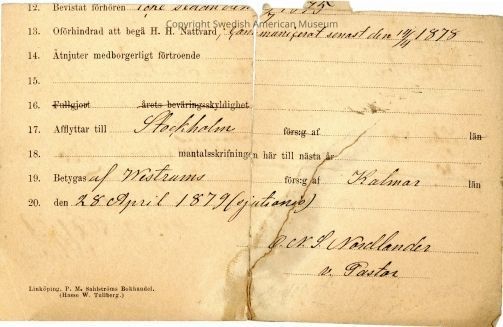 Copyright Swedish American Museum
12. Bevistat förhören 1875
13. Oförhindrad att begå H. H. Nattvard, Communicerat senast den 1878
14. Åtnjuter medborgerligt förtroende
15.
16. Fullgjort årets beväringsskyldighet
17. Afflyttar till Stockholm förs:g af län
18. mantalsskrifningen här till nästa år
19. Betygas af Westrums förs:g af Kalmar län
20. den 28 April 1879 (sjutionio)
Nordlander
v. Pastor
Linköping, P. M. Sahlströms Bokhandel.
(Hasse W. Tullberg.)